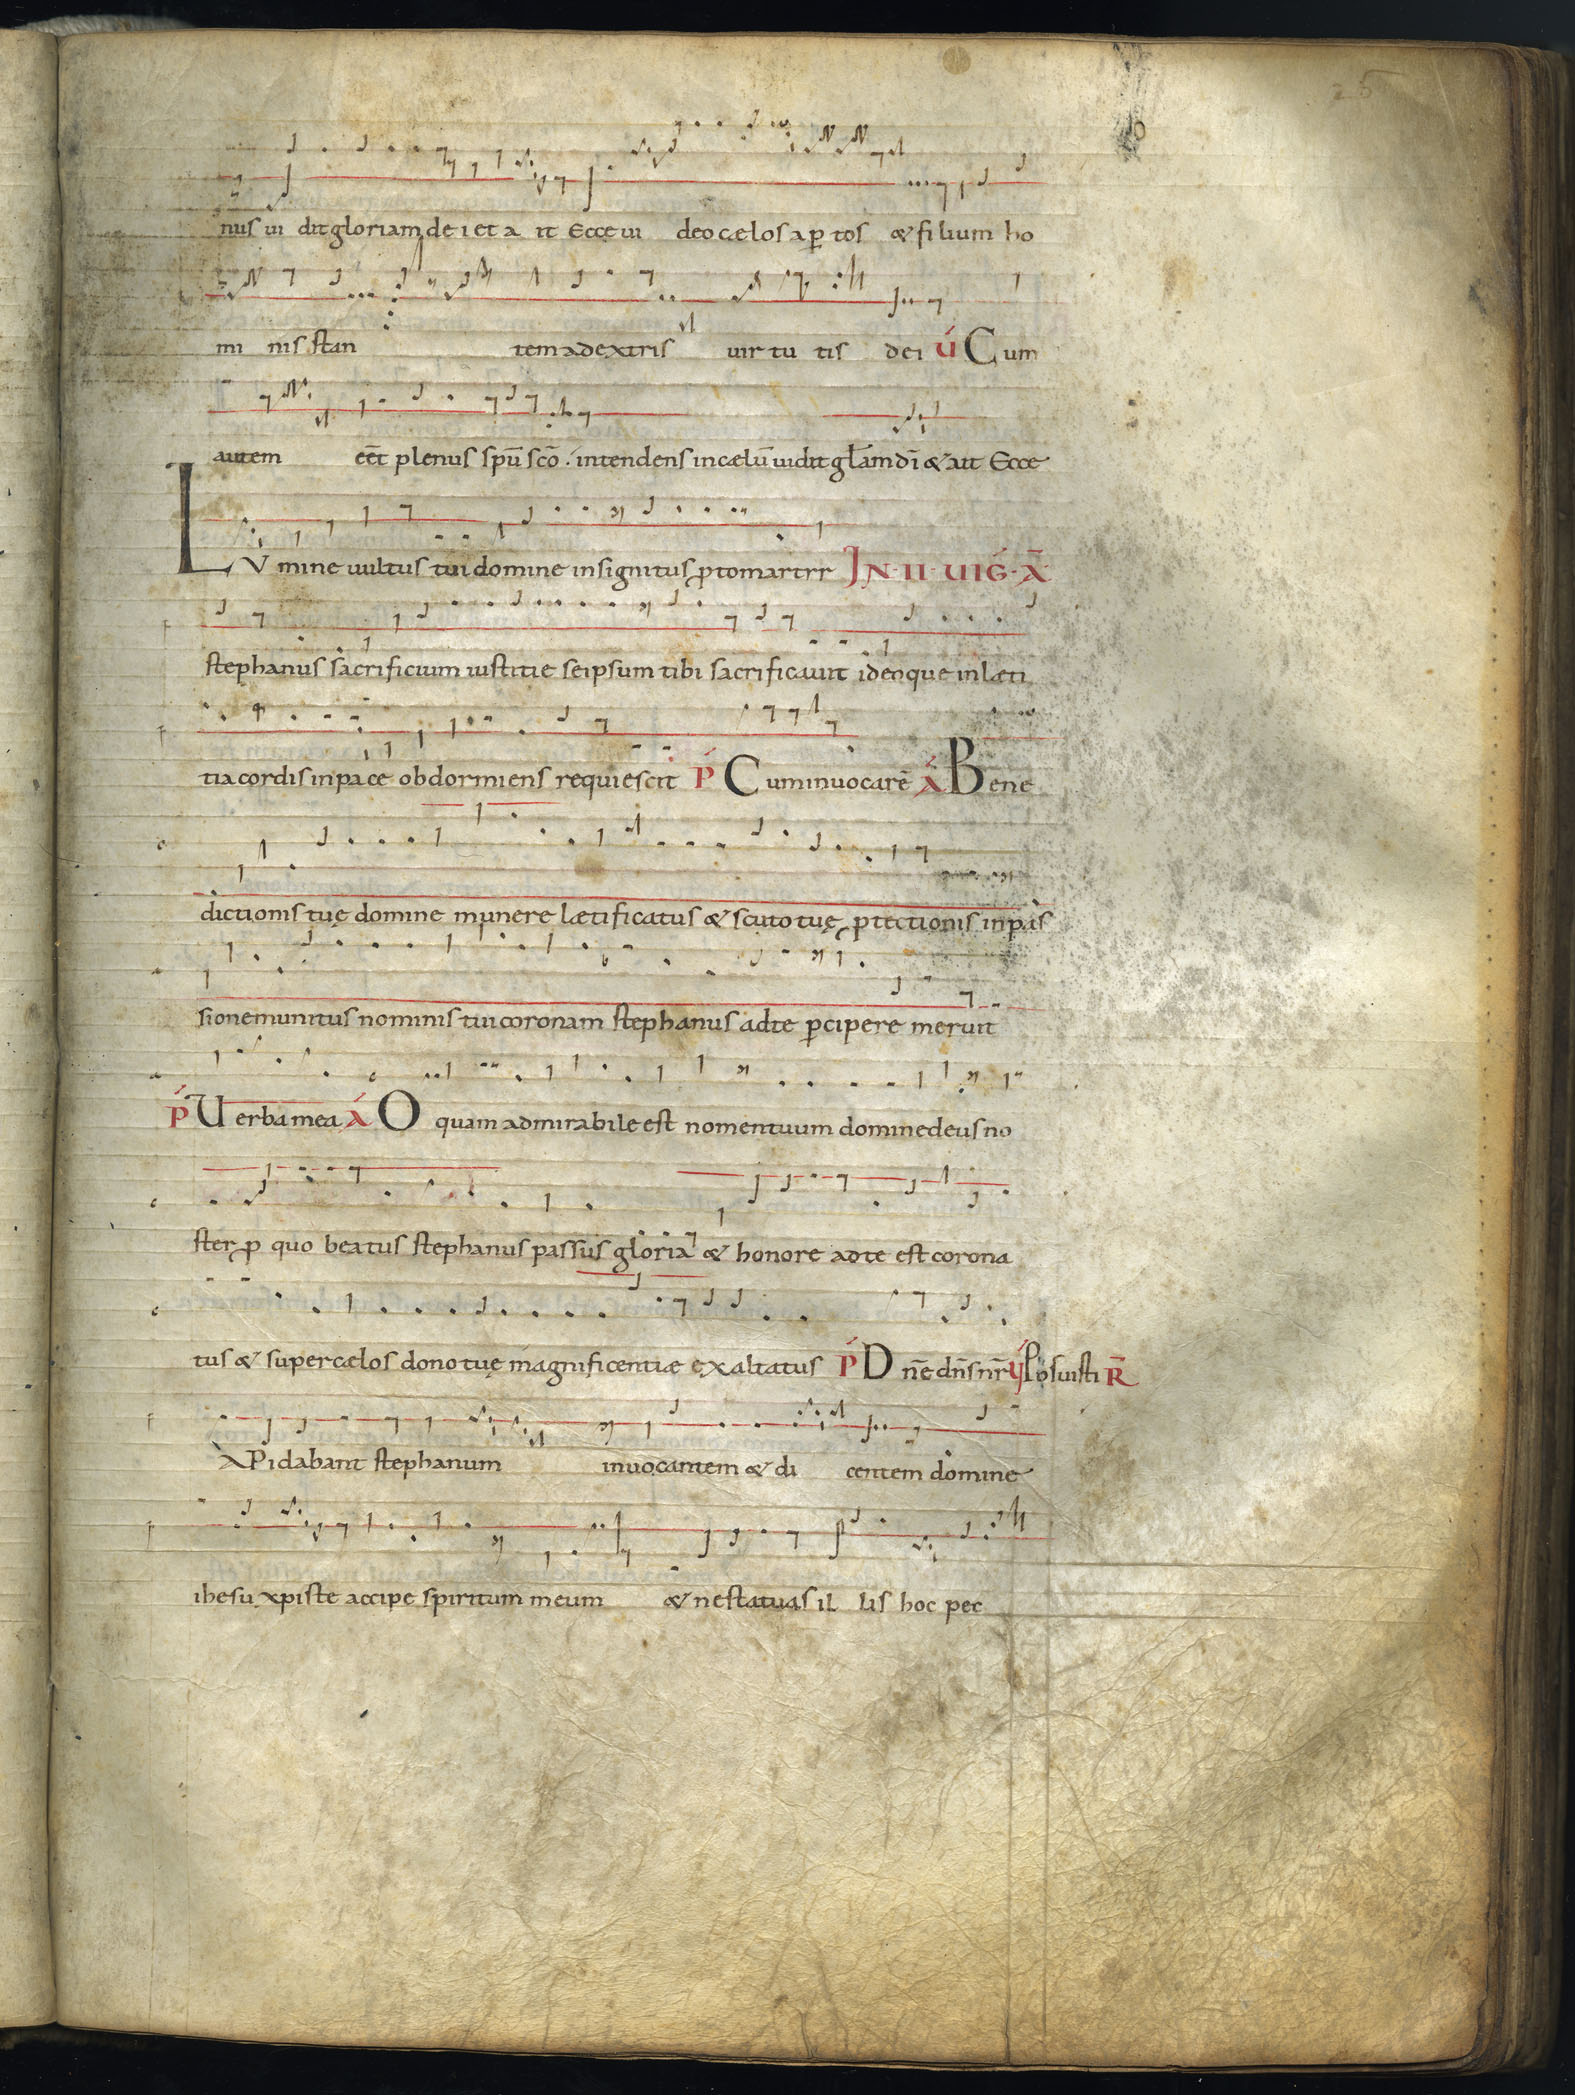 25
nus ui dit gloriam de i et a it Ecce ui deo cælos ap̱ tos & filium ho
mi nis stan tem adextris uir tu tis dei V́ Cum
autem eēt plenus sp̄u sc̄o · intendens incælū uidit gl̄am dī & ait Ecce
LVmine uultus tui domine insignitus ꝓtomartyr IN · II · UIǴ · Ā
stephanus sacrificium iustitie seipsum tibi sacrificauit ideoque inlæti
tia cordis inpace obdormiens requiescit Ṕ Cuminuocarē Á Bene
dictionis tuę domine munere lætificatus & scuto tuę ꝓtectionis inpas
sione munitus nominis tui coronam stephanus adte ꝑcipere meruit
Ṕ Uerba mea Á O quam admirabile est nomentuum dominedeusno
ster ꝓ quo beatus stephanus passus gloria & honore adte est corona
tus & supercælos dono tuę magnificentiæ exaltatus Ṕ Dn̄e dn̄s nr̄ V́ Posuisti R̄
LAPidabant stephanum inuocantem & di centem domine
ihesu xpiste accipe spiritum meum & nestatuas il lis hoc pec